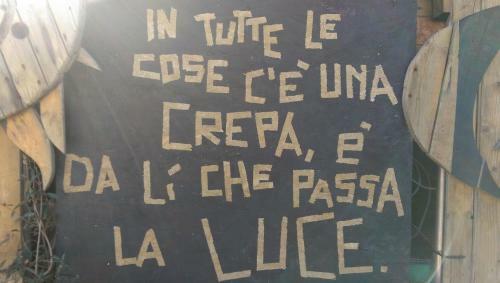 IN TUTTE LE
COSE C'È UNA
CREPA, È
DA LÍ CHE PASSA
LA LUCE.